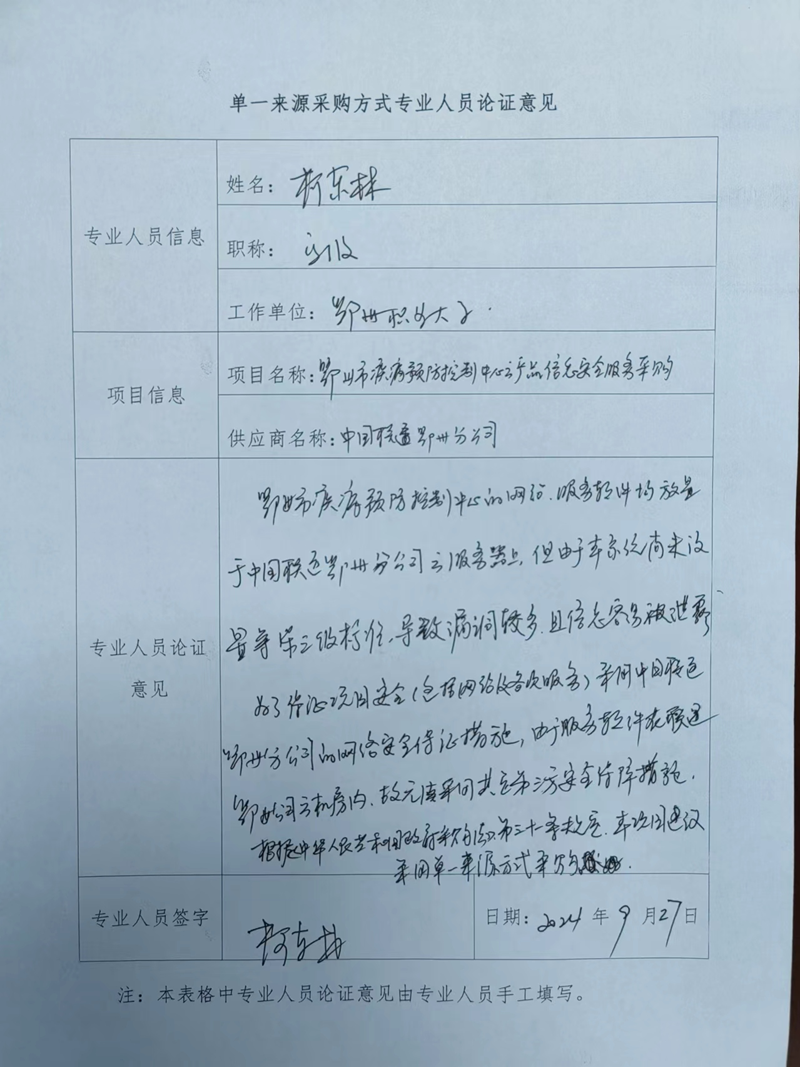 单一来源采购方式专业人员论证意见
专业人员信息
姓名：柯东林
职称：高级
工作单位：鄂州职业大学
项目信息
项目名称：鄂州市疾病预防控制中心云产品信息安全服务采购
供应商名称：中国联通鄂州分公司
专业人员论证
意见
鄂州市疾病预防控制中心的网络、服务软件均放置
于中国联通鄂州分公司云服务器上，但由于本系统尚未设
置等保三级标准，导致漏洞较多，且信息容易被泄露
为了保证项目安全（包括网络及各项服务）采用中国联通
鄂州分公司的网络安全保证措施，由于服务软件在联通
鄂州公司云机房内，故无法采用其它第三方安全保障措施。
根据中华人民共和国政府采购法第三十一条规定，本项目建议
采用单一来源方式采购
专业人员签字
柯东林
日期：2024 年 9 月 27 日
注：本表格中专业人员论证意见由专业人员手工填写。